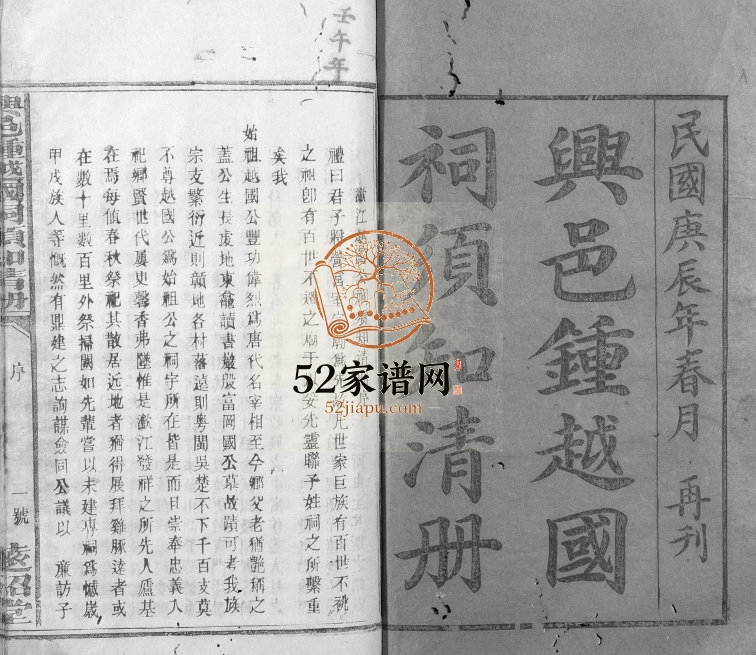 民國庚辰年春月 再刊
興邑鍾越國
祠須知清册
壬午年
瀲江
禮曰君子將營宮室 世家巨族有百世不祧
之祖卽有百世不遷之廟 妥先靈聯子姓祠之所繫重
矣我
始祖越國公豐功偉烈爲唐代名宰相至今鄉父老猶豔稱之
蓋公生長虔地東龕讀書巖殷富岡國公墓故蹟可考我族
宗支繁衍近則贛地各村落遠則粵閩吳楚不下千百支莫
不尊越國公爲始祖公之祠宇所在皆是而日崇奉忠義人
祀鄉賢世代屢更馨香弗墜惟是瀲江發祥之所先人廬基
在焉每值春秋祭祀其散居近地者猶得展拜雞豚遠者或
在數十里數百里外祭掃闕如先輩嘗以未建專祠爲憾歲
甲戌族人等慨然有鼎建之志詢謀僉同公議以 廉訪子
興邑鍾越國祠須知清册
序
一號
52家谱网
52jiapu.com